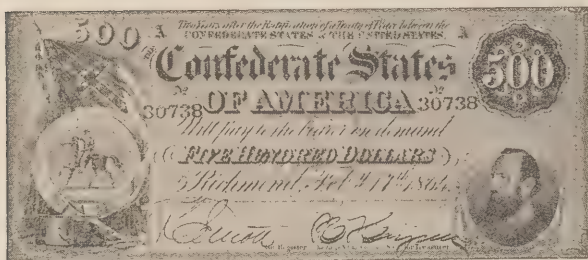 500 A Two Years after the Ratification of a Treaty of Peace between the A
CONFEDERATE STATES & THE UNITED STATES
Confederate States 500
No No
30738 OF AMERICA 30738
Will pay to the bearer on demand
FIVE HUNDRED DOLLARS
Richmond Feb. 17th 1864.
for Register for Treasurer